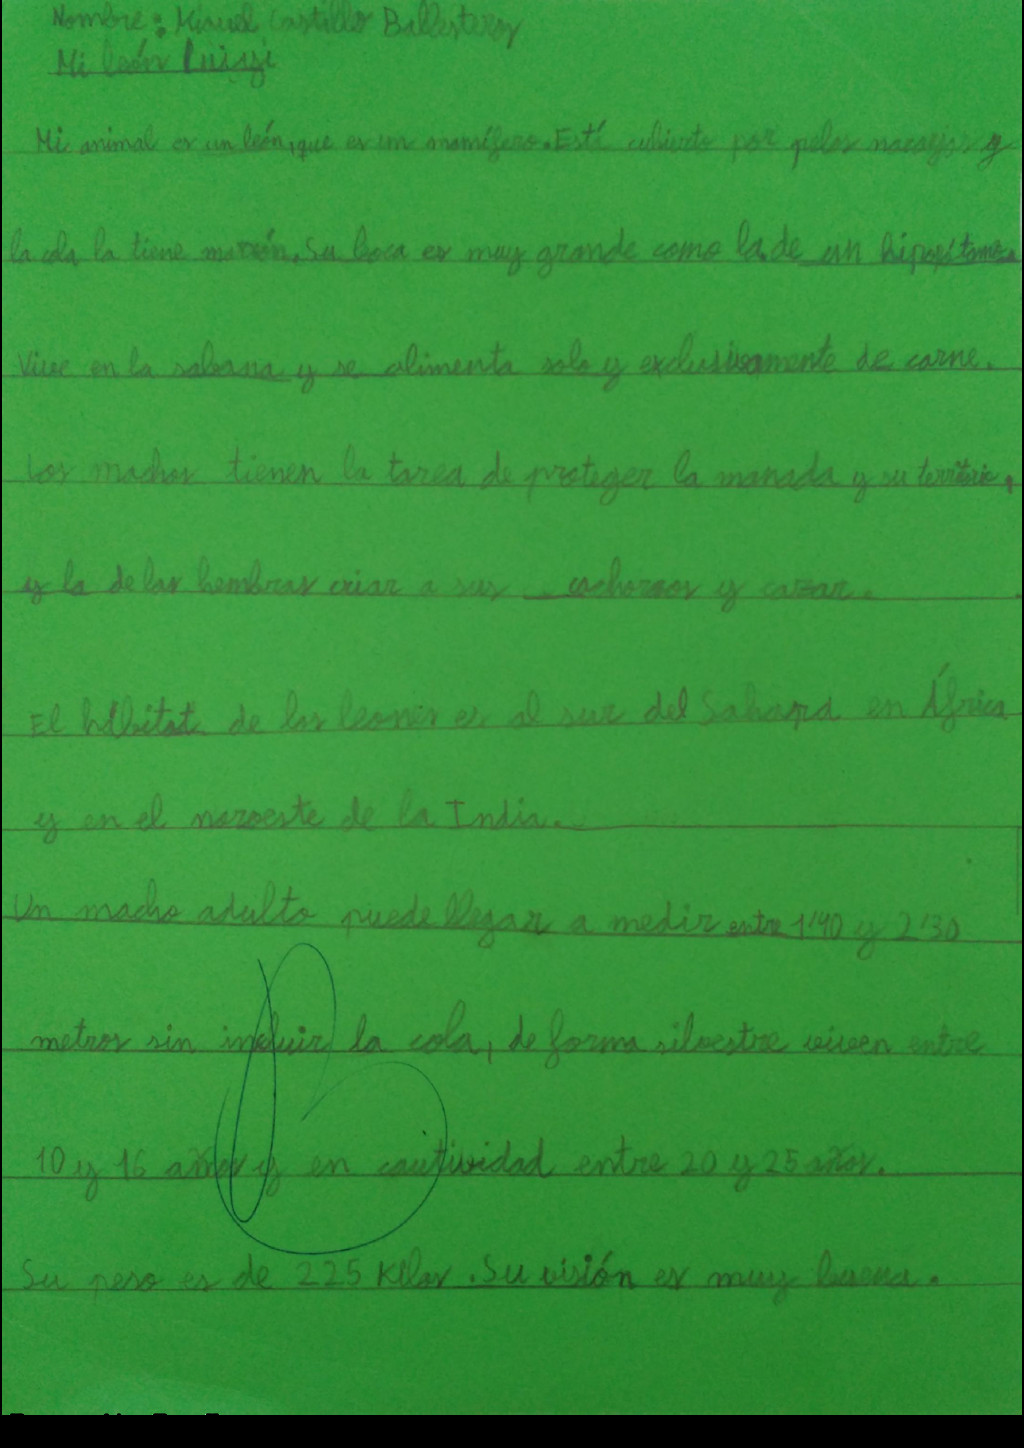 Nombre: Miguel Castillo Ballesteros
Mi león Luiszi
Mi animal es un león, que es un mamífero. Está cubierto por pelos narajos y
la cola la tiene marrón. Su boca es muy grande como la de un hipopótamo.
Vive en la sabana y se alimenta solo y exclusivamente de carne.
Los machos tienen la tarea de proteger la manada y su territorio,
y la de las hembras criar a sus cachorros y cazar.
El hábitat de los leones es al sur del Sahara en África
y en el noroeste de la India.
Un macho adulto puede llegar a medir entre 1'40 y 2'30
metros sin incluir la cola, de forma silvestre viven entre
10 y 16 años y en cautividad entre 20 y 25 años.
Su peso es de 225 Kilos. Su visión es muy buena.